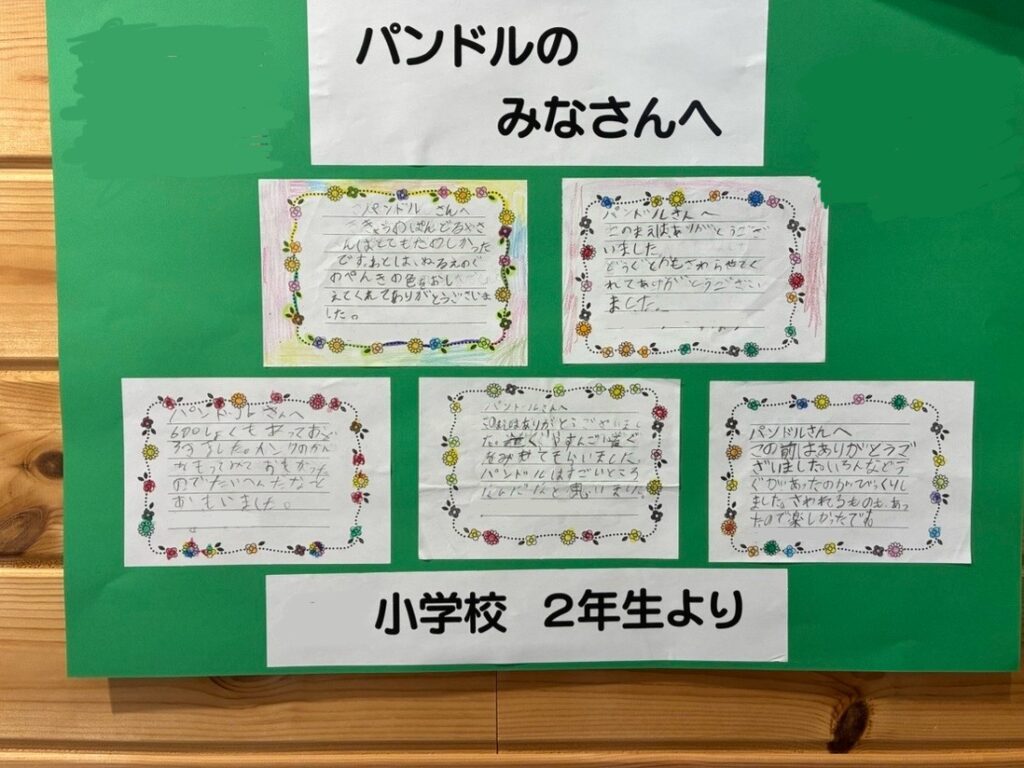 パンドルの
みなさんへ
パンドル さんへ
きょうのぱんどるやさ
んはとてもたのしかった
です。あとは、ぬるえのぐ
のぺんきの色をおし
えてくれてありがとうございま
した。
パンドルさんへ
このまえはありがとうござ
いました
どうぐとかもさわらせてく
れてありがとうござい
ました。
パンドルさんへ
600しょくもあっておど
ろきました。インクのかん
をもってみておもかった
のでたいへんだなと
おもいました。
パンドルさんへ
はありがとうございまし
た。
パンドルはすごいところ
なんだなと思いました。
パンドルさんへ
この前はありがとうご
ざいました。いろんなどう
ぐがあったのがびっくりし
ました。さわれるものも、あっ
たので楽しかったです
小学校 2年生より